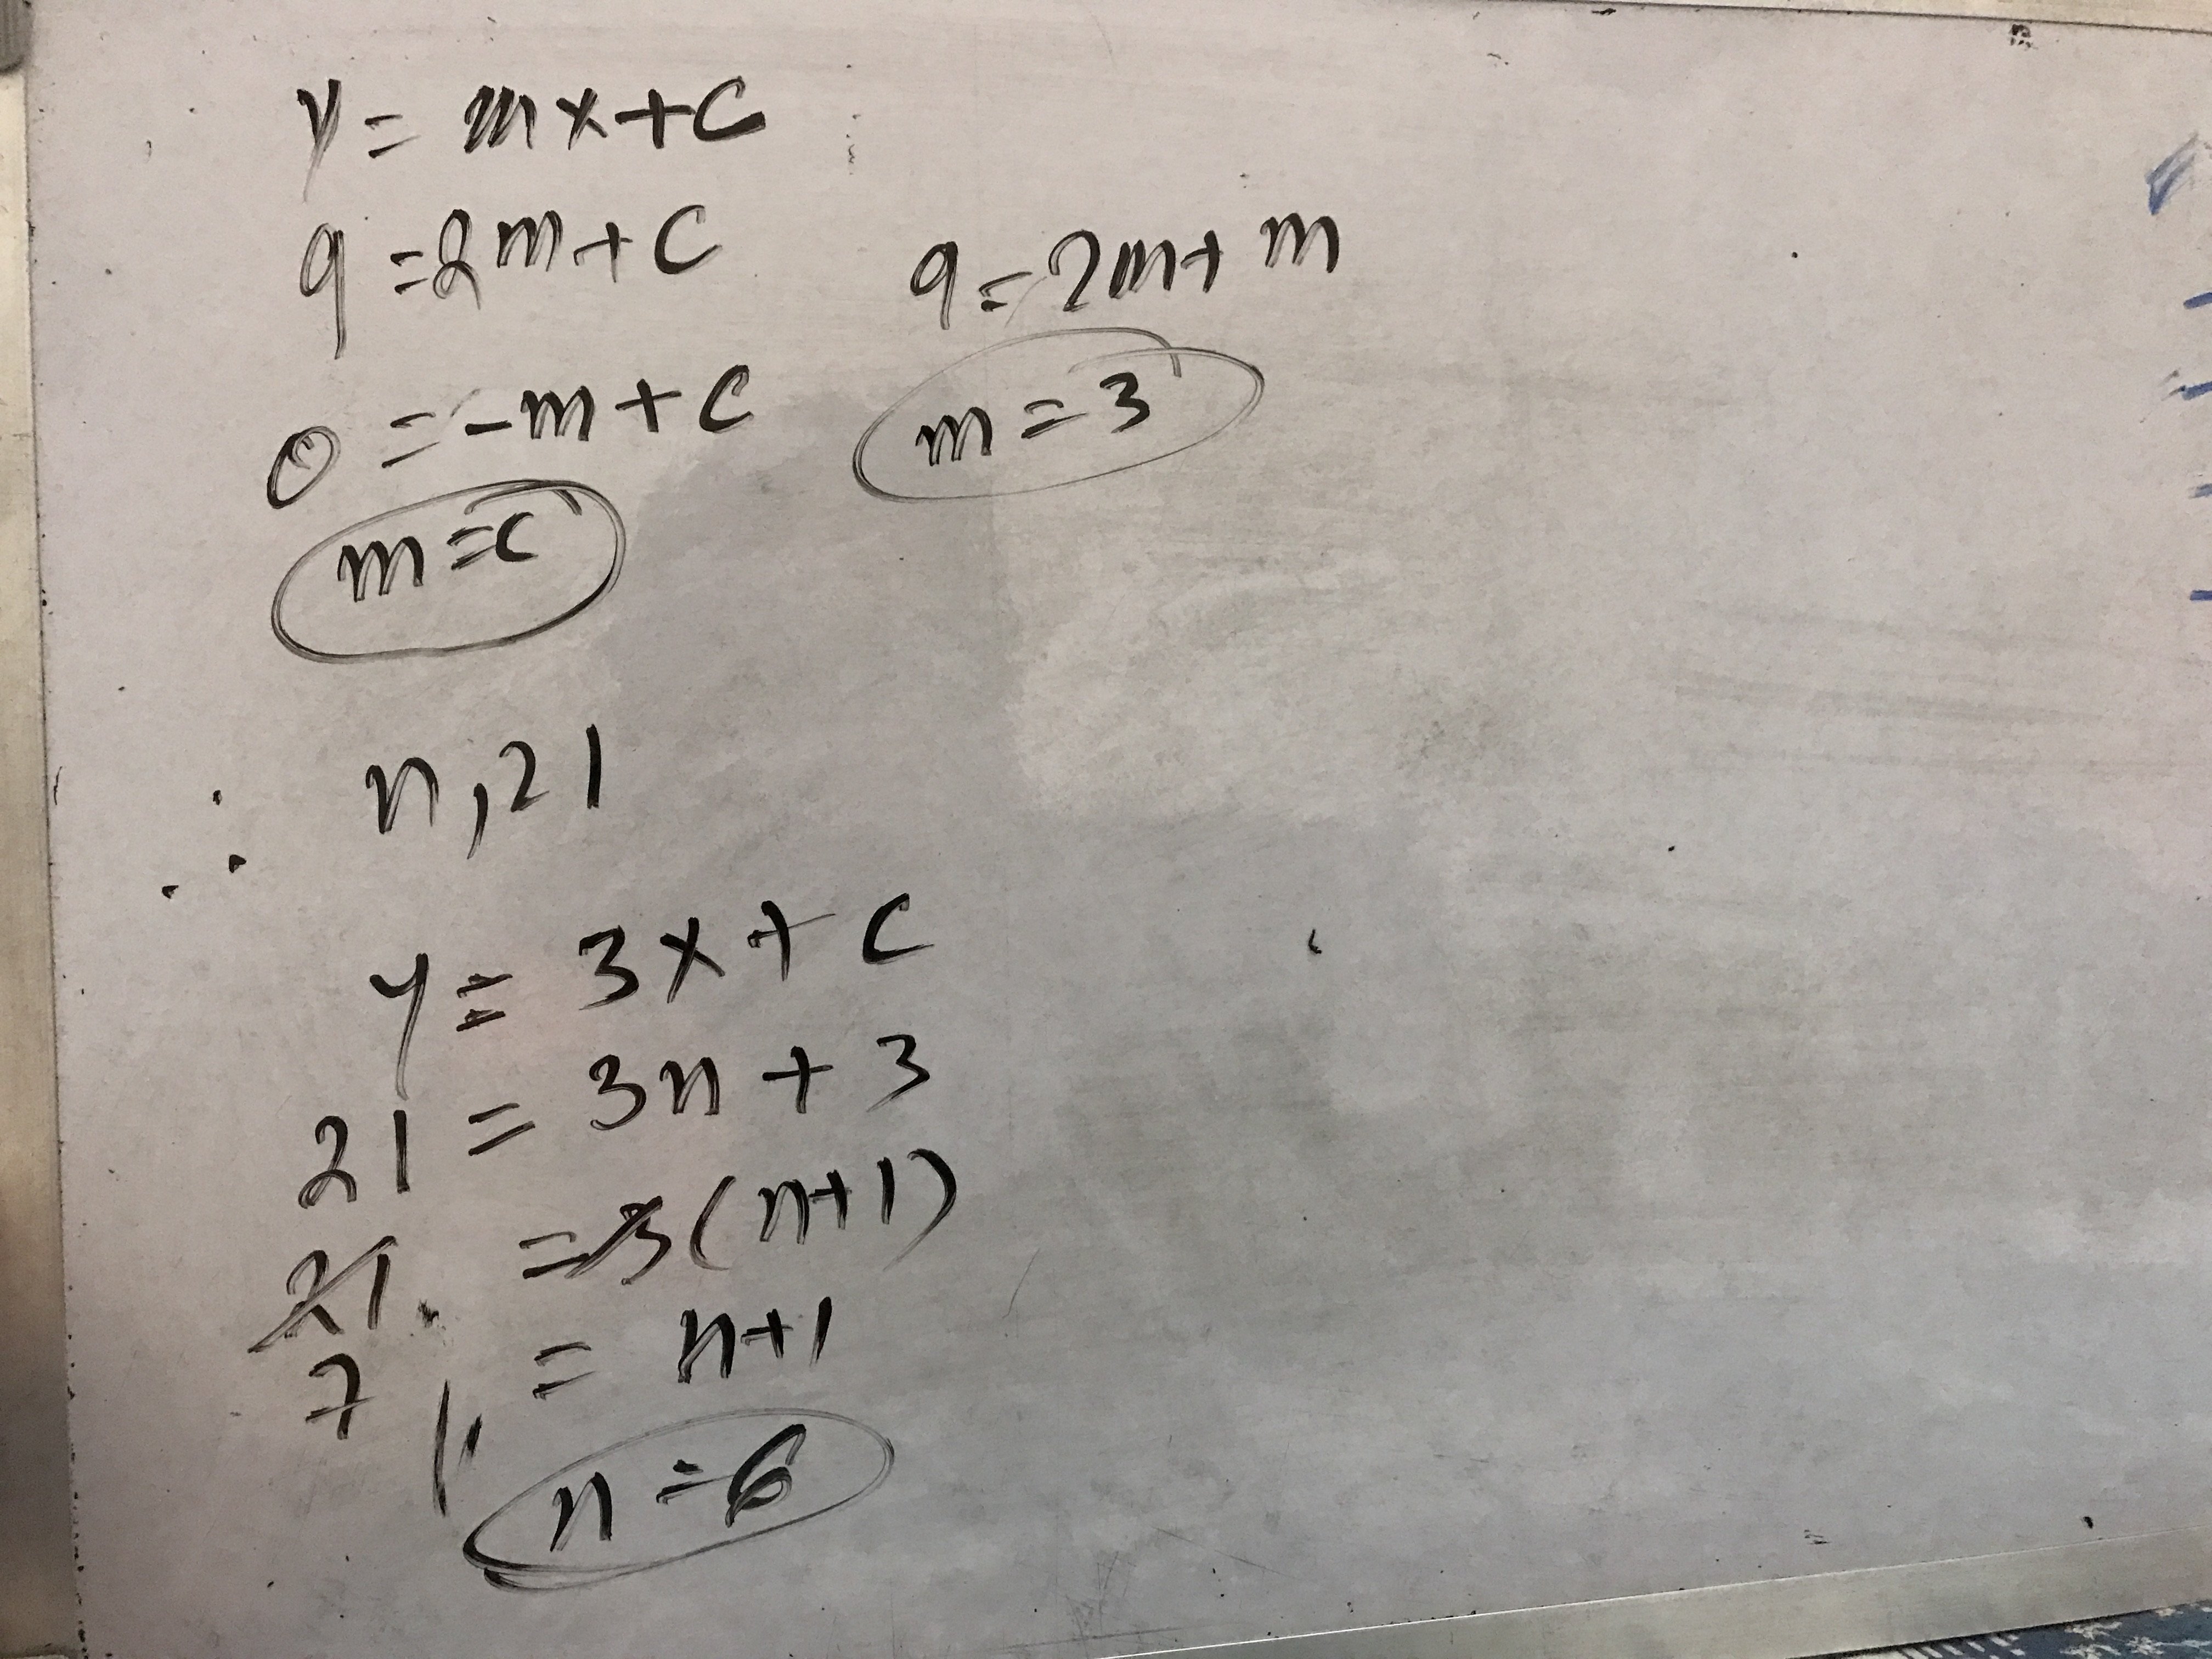 y = mx + c
9 = 2m + c
0 = -m + c
m = c
9 = 2m + m
m = 3
∴ n, 21
y = 3x + c
21 = 3n + 3
21 = 3(n+1)
7 = n+1
n = 6